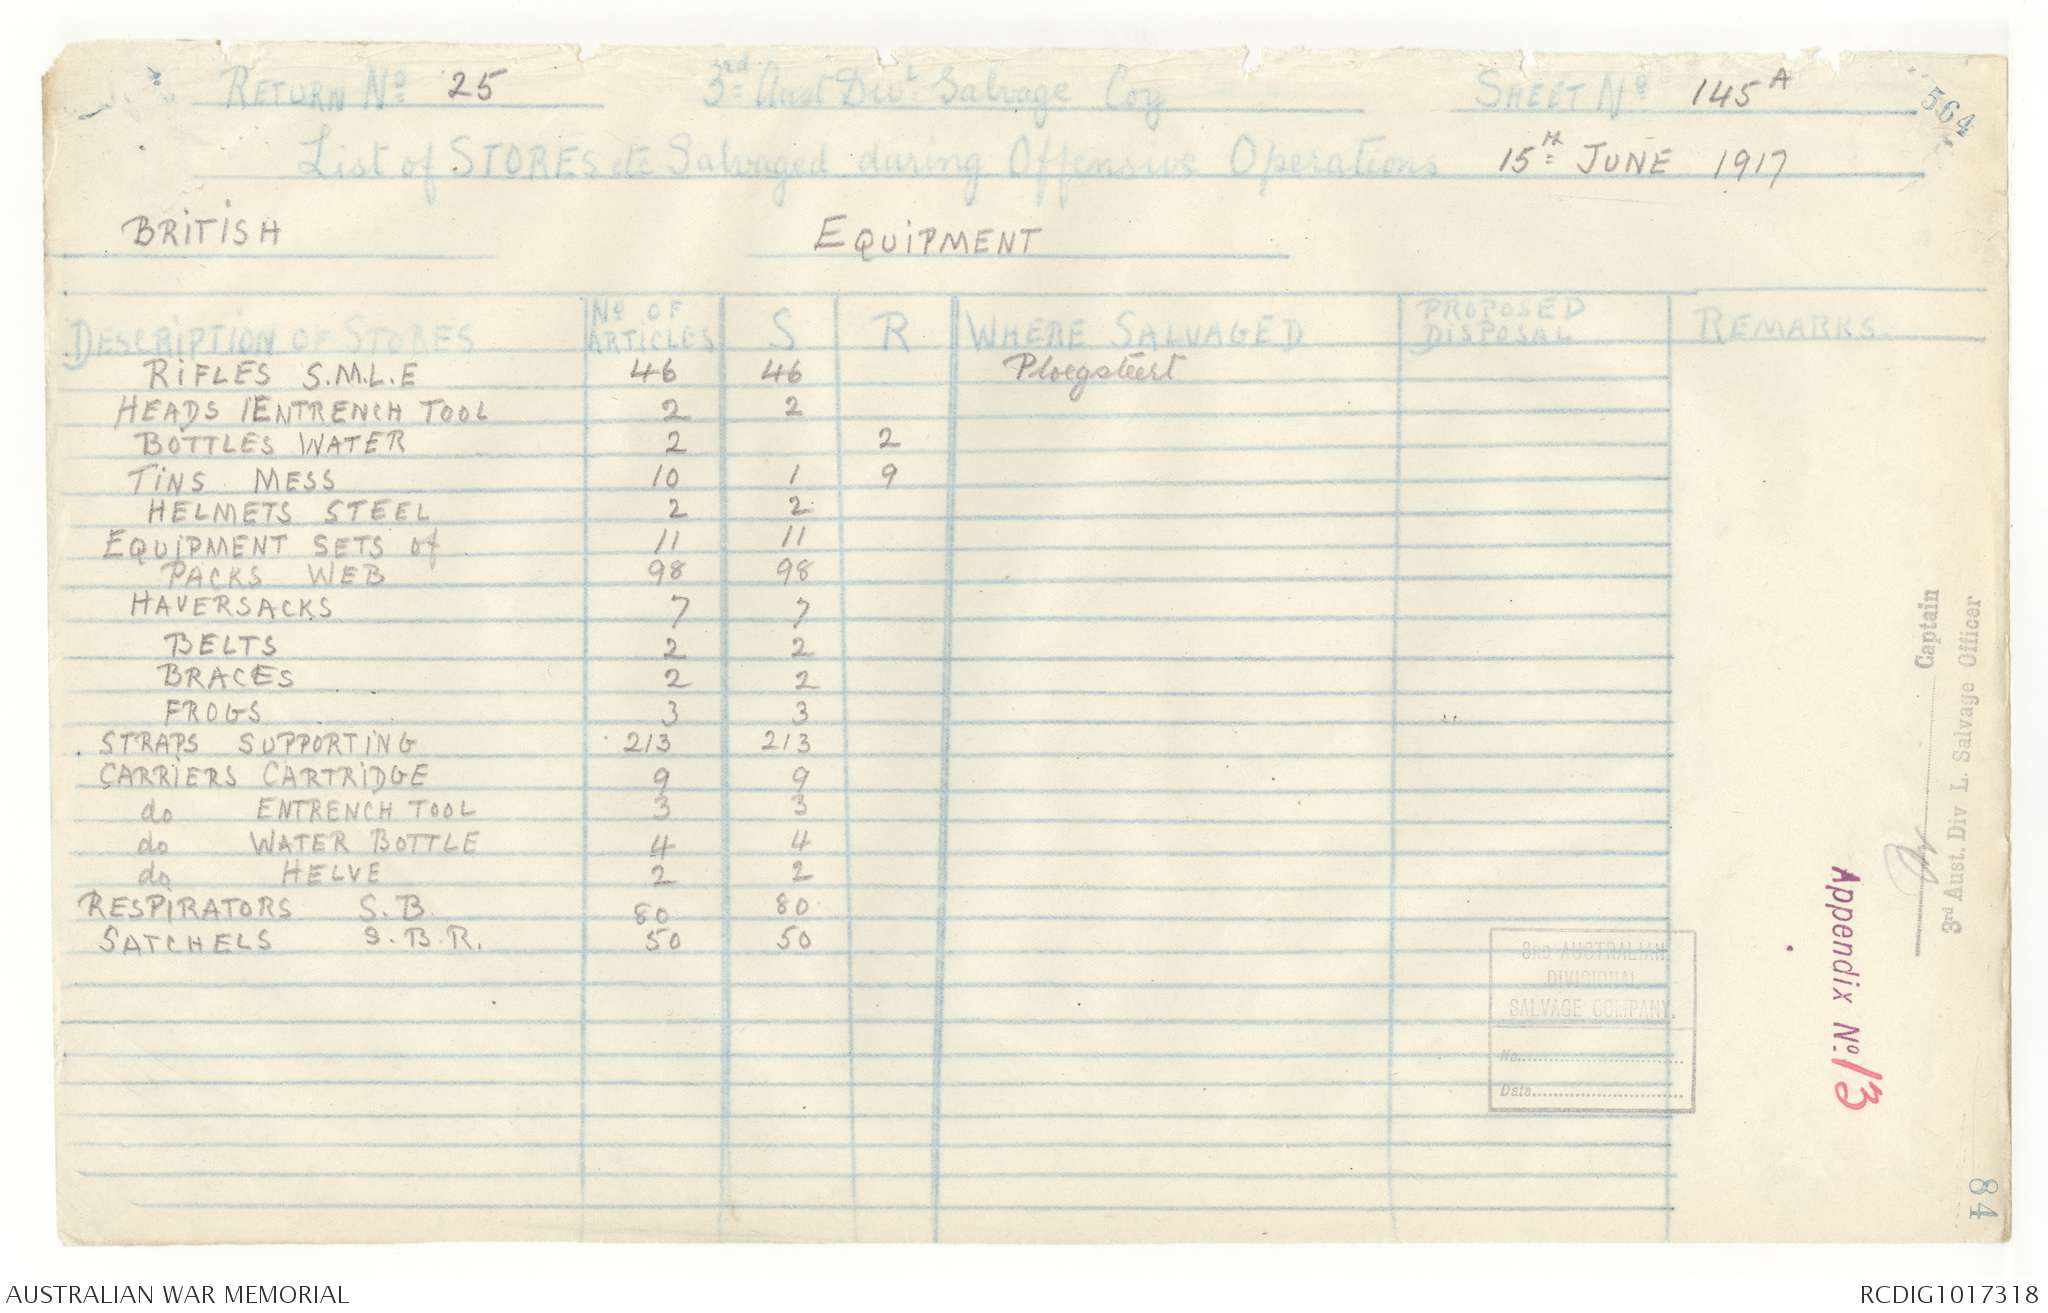 RETURN No 25 3rd Aust Divl Salvage Coy SHEET No 145A
564
List of STORES etc Salvaged during Offensive Operations 15th JUNE 1917
BRITISH EQUIPMENT
DESCRIPTION OF STORES No OF ARTICLES S R WHERE SALVAGED PROPOSED DISPOSAL REMARKS.
RIFLES S.M.L.E 46 46 Ploegsteert
HEADS ENTRENCH TOOL 2 2
BOTTLES WATER 2 2
TINS MESS 10 1 9
HELMETS STEEL 2 2
EQUIPMENT SETS of 11 11
PACKS WEB 98 98
HAVERSACKS 7 7
BELTS 2 2
BRACES 2 2
FROGS 3 3
STRAPS SUPPORTING 213 213
CARRIERS CARTRIDGE 9 9
do ENTRENCH TOOL 3 3
do WATER BOTTLE 4 4
do HELVE 2 2
RESPIRATORS S.B. 80 80
SATCHELS S.B.R. 50 50
3RD AUSTRALIAN
DIVISIONAL
SALVAGE COMPANY.
No.
Date
Captain
3rd Aust. Div L. Salvage Officer
Appendix No. 13
84
AUSTRALIAN WAR MEMORIAL RCDIG1017318